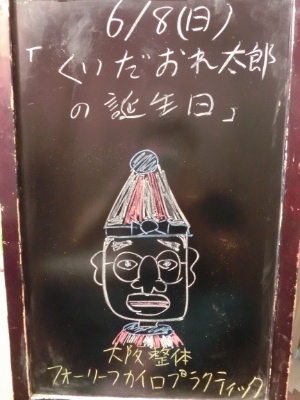 6/8(日)
「くいだおれ太郎
の誕生日」
大阪整体
フォーリーフカイロプラクティック